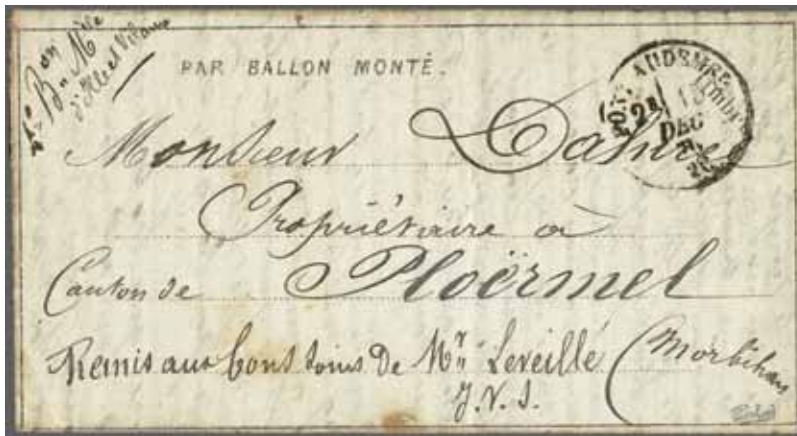 1er Bon Mile
d'Ille et Vilaine
PAR BALLON MONTÉ.
PONT-AUDEMER
DEC
Monsieur
Propriétaire à
Canton de Ploërmel
Remis aux bons soins de Mr Leveillé (Morbihan
J.V.S.